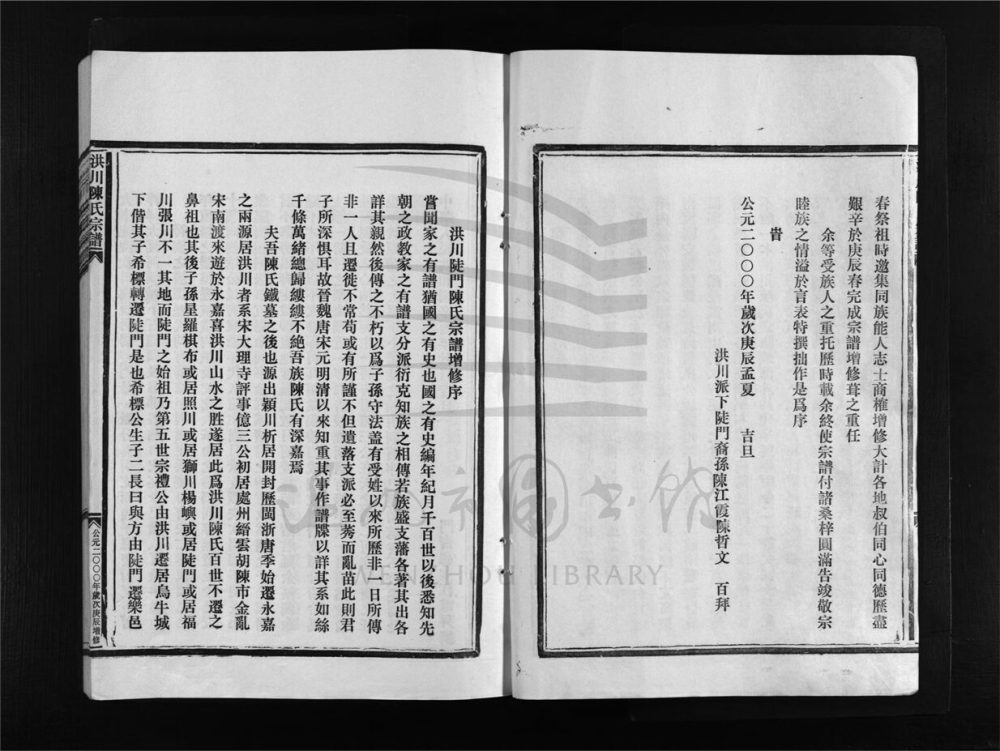 春祭祖時邀集同族能人志士商榷增修大計各地叔伯同心同德歷盡
艱辛於庚辰春完成宗譜增修葺之重任
余等受族人之重托歷時載余終使宗譜付諸桑梓圓滿告竣敬宗
睦族之情溢於言表特撰拙作是爲序
旹
公元二〇〇〇年歲次庚辰孟夏 吉旦
洪川派下陡門裔孫陳江霞陳哲文 百拜
洪川陡門陳氏宗譜增修序
嘗聞家之有譜猶國之有史也國之有史編年紀月千百世以後悉知先
朝之政教家之有譜支分派衍克知族之相傳若族盛支藩各著其出各
詳其親然後傳之不朽以爲子孫守法盖有受姓以來所歷非一日所傳
非一人且遷徙不常苟或有所謹不但遺落支派必至莠而亂苗此則君
子所深惧耳故晉魏唐宋元明清以來知重其事作譜牒以詳其系如絲
千條萬緒總歸縷縷不絶吾族陳氏有深嘉焉
夫吾陳氏鐵墓之後也源出穎川析居開封歷閩浙唐季始遷永嘉
之兩源居洪川者系宋大理寺評事億三公初居處州縉雲胡陳市金亂
宋南渡來遊於永嘉喜洪川山水之胜遂居此爲洪川陳氏百世不遷之
鼻祖也其後子孫星羅棋布或居照川或居獅川楊嶼或居陡門或居福
川張川不一其地而陡門之始祖乃第五世宗禮公由洪川遷居烏牛城
下偕其子希標轉遷陡門是也希標公生子二長曰與方由陡門遷樂邑
洪川陳氏宗譜
公元二〇〇〇年歲次庚辰增修
温州市圖書館
WENZHOU LIBRARY